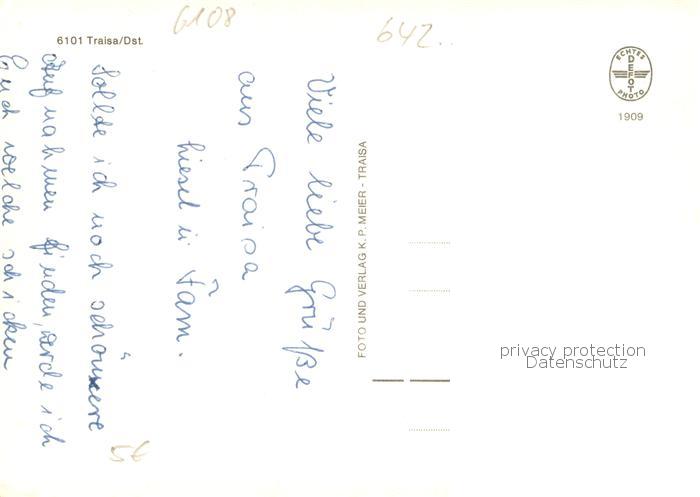 6101 Traisa/Dst.
6108
642..
ECHTES
DEFOT
PHOTO
1909
Viele liebe Grüße
aus Traisa
Liesel u Fam.
Sollte ich noch schönere
Aufnahmen finden, werde ich
Euch welche schicken
FOTO UND VERLAG K. P. MEIER - TRAISA
5€
privacy protection
Datenschutz